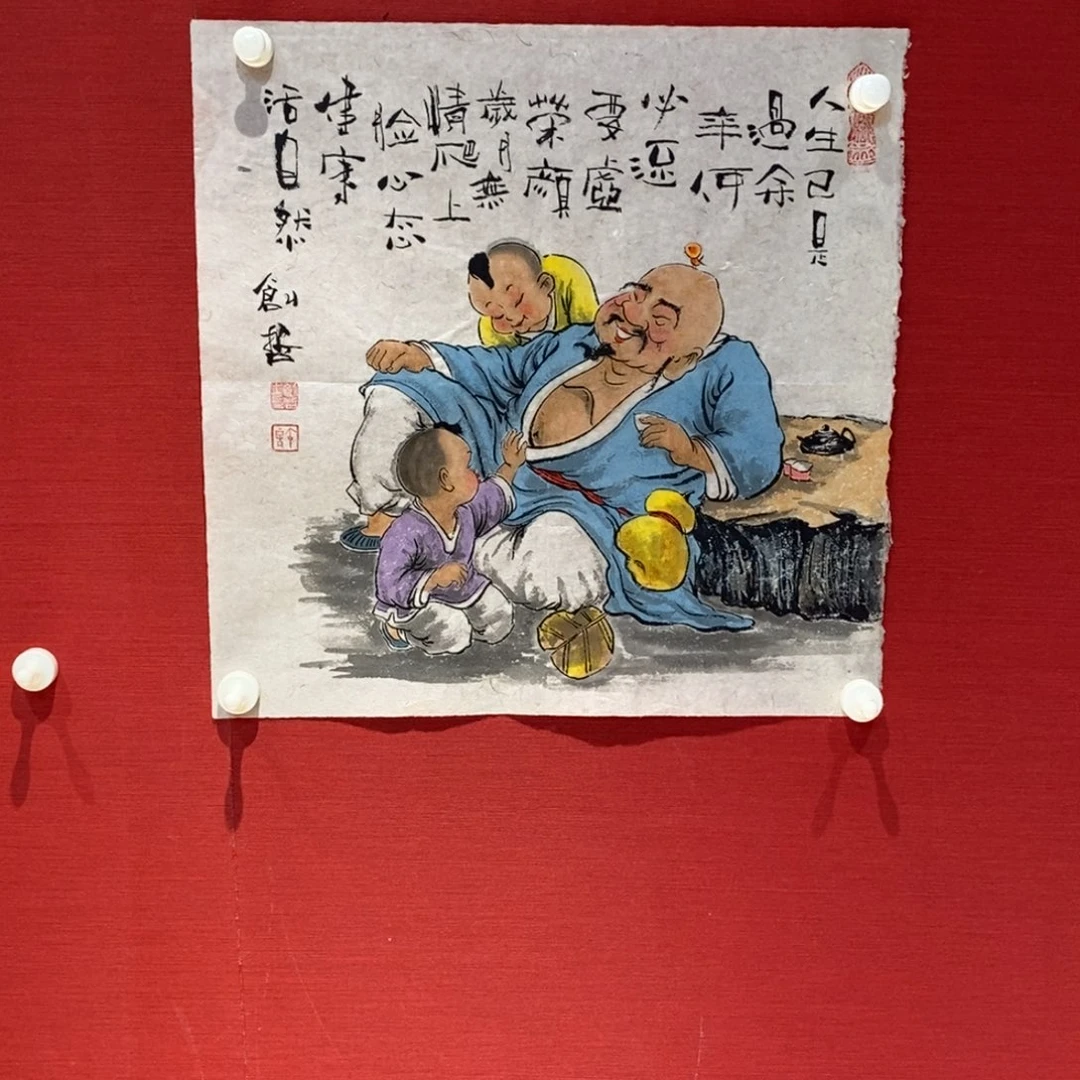 人生已是
過余
年何
必還
要虛
榮顏
歲月無
情爬上
脸心态
活自然
創